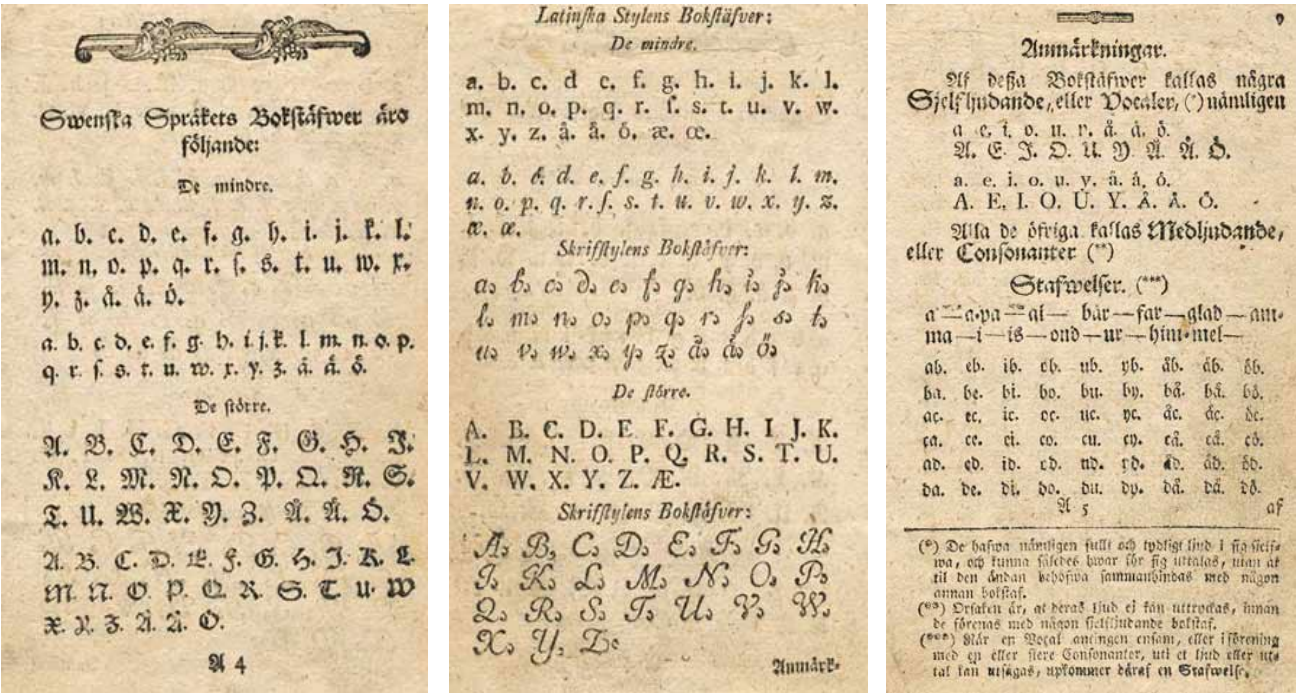 Swenſka Språkets Bokſtäfwer äro
följande:
De mindre.
a. b. c. d. e. f. g. h. i. j. k. l.
m. n. o. p. q. r. ſ. s. t. u. w. x.
y. z. å. ä. ö.
a. b. c. d. e. f. g. h. i. j. k. l. m. n. o. p.
q. r. ſ. s. t. u. w. x. y. z. å. ä. ö.
De ſtörre.
A. B. C. D. E. F. G. H. I.
K. L. M. N. O. P. Q. R. S.
T. U. W. X. Y. Z. Å. Ä. Ö.
A. B. C. D. E. F. G. H. J. K. L
M. N. O. P. Q. R. S. T. U. W
X. Y. Z. Å. Ä. Ö.
A 4
Latinſka Stylens Bokſtäfver:
De mindre.
a. b. c. d e. f. g. h. i. j. k. l.
m. n. o. p. q. r. ſ. s. t. u. v. w.
x. y. z. å. ä. ö. æ. œ.
a. b. c. d. e. f. g. h. i. j. k. l. m.
n. o. p. q. r. ſ. s. t. u. v. w. x. y. z.
æ. œ.
Skrifſtylens Bokſtäfver:
a, b, c, d, e, f, g, h, i, j, k,
l, m, n, o, p, q, r, ſ, s, t,
u, v, w, x, y, z, å, ä, ö,
De ſtörre.
A. B. C. D. E F. G. H. I J. K.
L. M. N. O. P. Q. R. S. T. U.
V. W. X. Y. Z. Æ.
Skrifſtylens Bokſtäfver:
A, B, C, D, E, F, G, H,
J, K, L, M, N, O, P,
Q, R, S, T, U, V, W,
X, Y, Z,
Anmärk-
9
Anmärkningar.
Af deßa Bokſtäfwer kallas några
Sjelfljudande, eller Vocaler, (*) nämligen
a. e. i. o. u. y. å. ä. ö.
A. E. I. O. U. Y. Å. Ä. Ö.
a. e. i. o. u. y. å. ä. ö.
A. E. I. O. U. Y. Å. Ä. Ö.
Alla de öfriga kallas Medljudande,
eller Conſonanter (**)
Stafwelſer. (***)
a — a-pa — al — bär — far — glad — am-
ma — i — is — ond — ur — him-mel —
ab. eb. ib. ob. ub. yb. åb. äb. öb.
ba. be. bi. bo. bu. by. bå. bä. bö.
ac. ec. ic. oc. uc. yc. åc. äc. öc.
ca. ce. ci. co. cu. cy. cå. cä. cö.
ad. ed. id. od. ud. yd. åd. äd. öd.
da. de. di. do. du. dy. då. dä. dö.
A 5 af
(*) De hafwa nämligen fullt och tydligt ljud i ſig ſjelf-
wa, och kunna ſåledes hwar för ſig uttalas, utan at
til den ändan behöfwa ſammanbindas med någon
annan bokſtaf.
(**) Orſaken är, at deras ljud ej kan uttryckas, innan
de förenas med någon ſjelfljudande bokſtaf.
(***) När en Vocal antingen enſam, eller i förening
med en eller flere Conſonanter, uti et ljud eller ut-
tal kan utſägas, upkommer däraf en Stafwelſe.